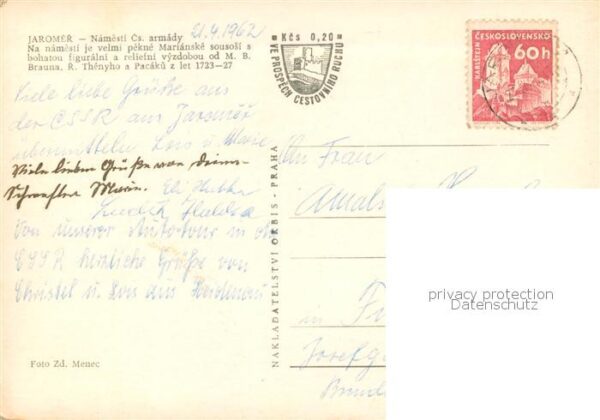 JAROMĚŘ — Náměstí Čs. armády
21.4.1962
Na náměstí je velmi pěkné Mariánské sousoší s
bohatou figurální a reliefní výzdobou od M. B.
Brauna, R. Thényho a Pacáků z let 1723—27
Kčs 0,20
VE PROSPĚCH CESTOVNÍHO RUCHU
KARLŠTEJN
ČESKOSLOVENSKO
60h
Viele liebe Grüße aus
der ČSSR aus Jaroměř
übermitteln Lois u. Marie
Viele lieben Grüße von deiner
Schwester Marie.
Von unserer Autotour in der
ČSSR herzliche Grüße von
Christel u. Lois aus
Foto Zd. Menec
NAKLADATELSTVÍ ORBIS - PRAHA
An Frau
in
privacy protection
Datenschutz